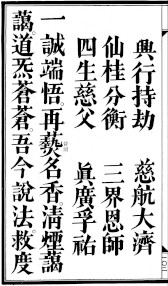 興行持劫　慈航大濟
仙桂分衡　三界恩師
四生慈父　眞廣孚祐
一誠端悟。再爇名香。清煙藹
藹。道炁蒼蒼。吾今說法救度